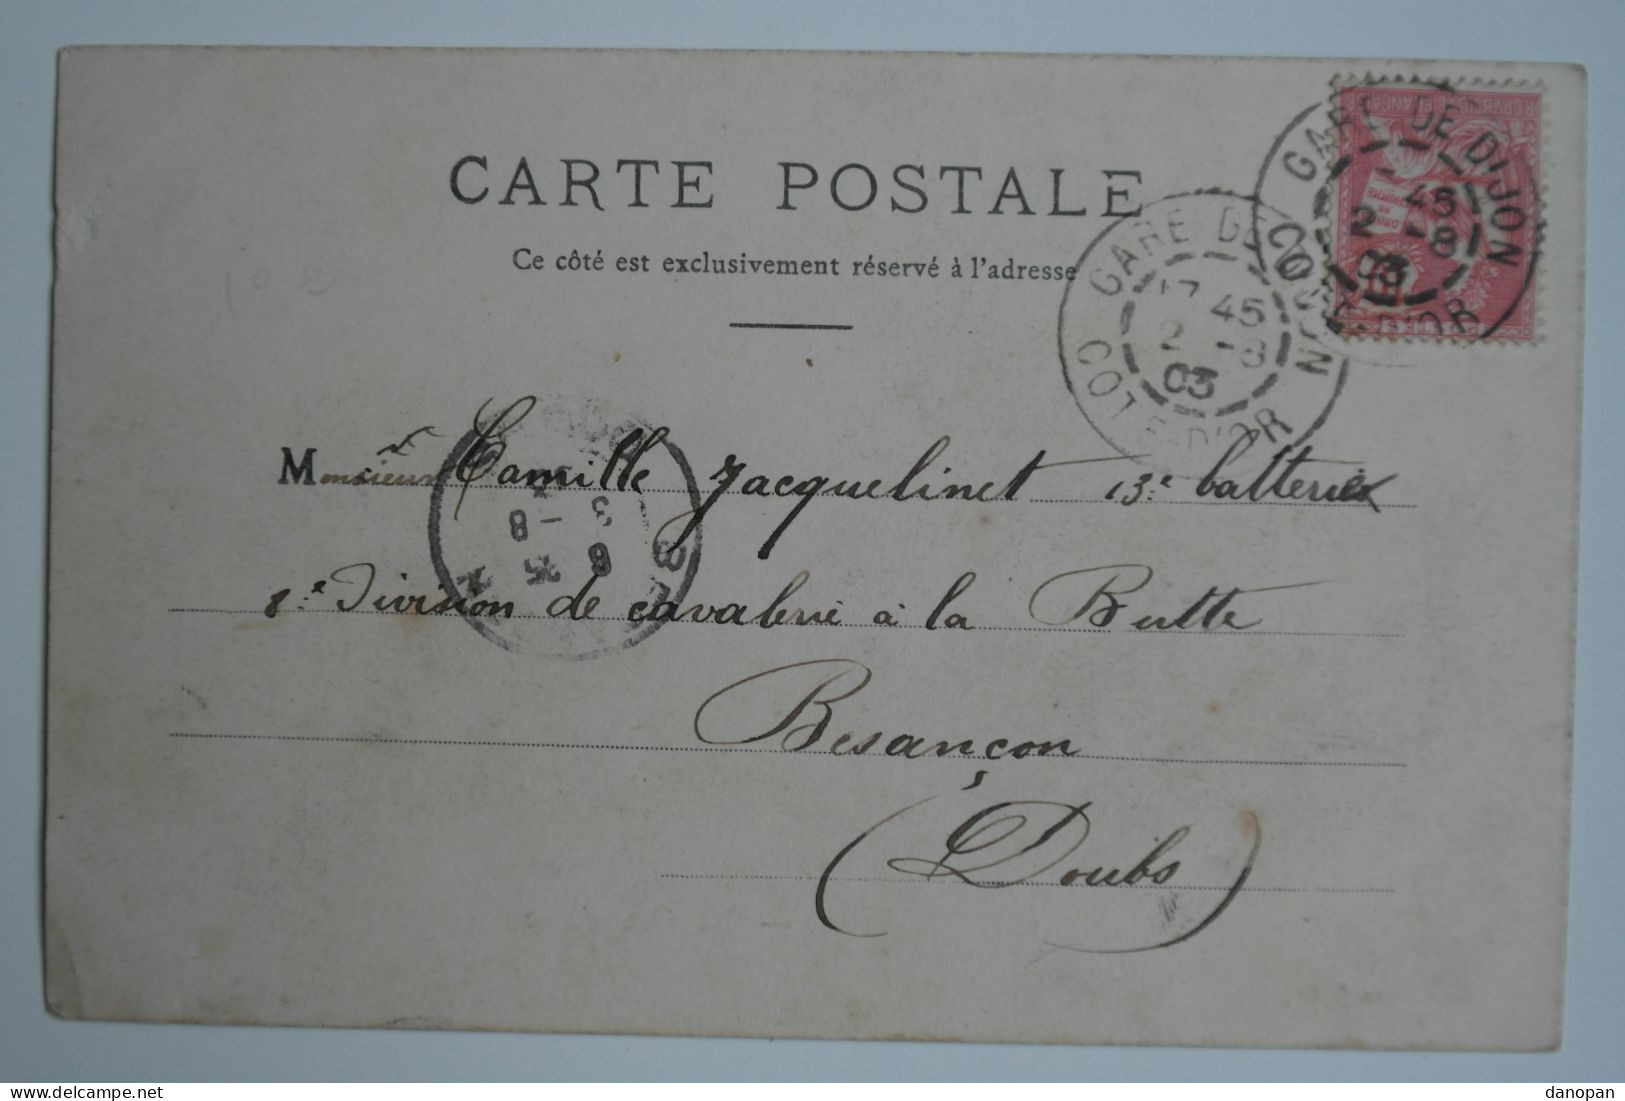 CARTE POSTALE
Ce côté est exclusivement réservé à l'adresse
GARE DE DIJON
17 45
2 -8
03
COTE-D'OR
GARE DE DIJON
45
2 -8
03
COTE-D'OR
REPUBLIQUE FRANÇAISE
DROITS DE L'HOMME
10
POSTES
Monsieur Camille Jacquelinet 13e batterie
8e Division de cavalerie à la Butte
Besançon
(Doubs)
6 35
3 -8
delcampe.net
danopan